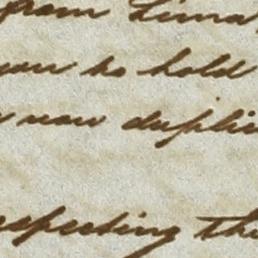 from Lima
you to hold
now duplic
especting th